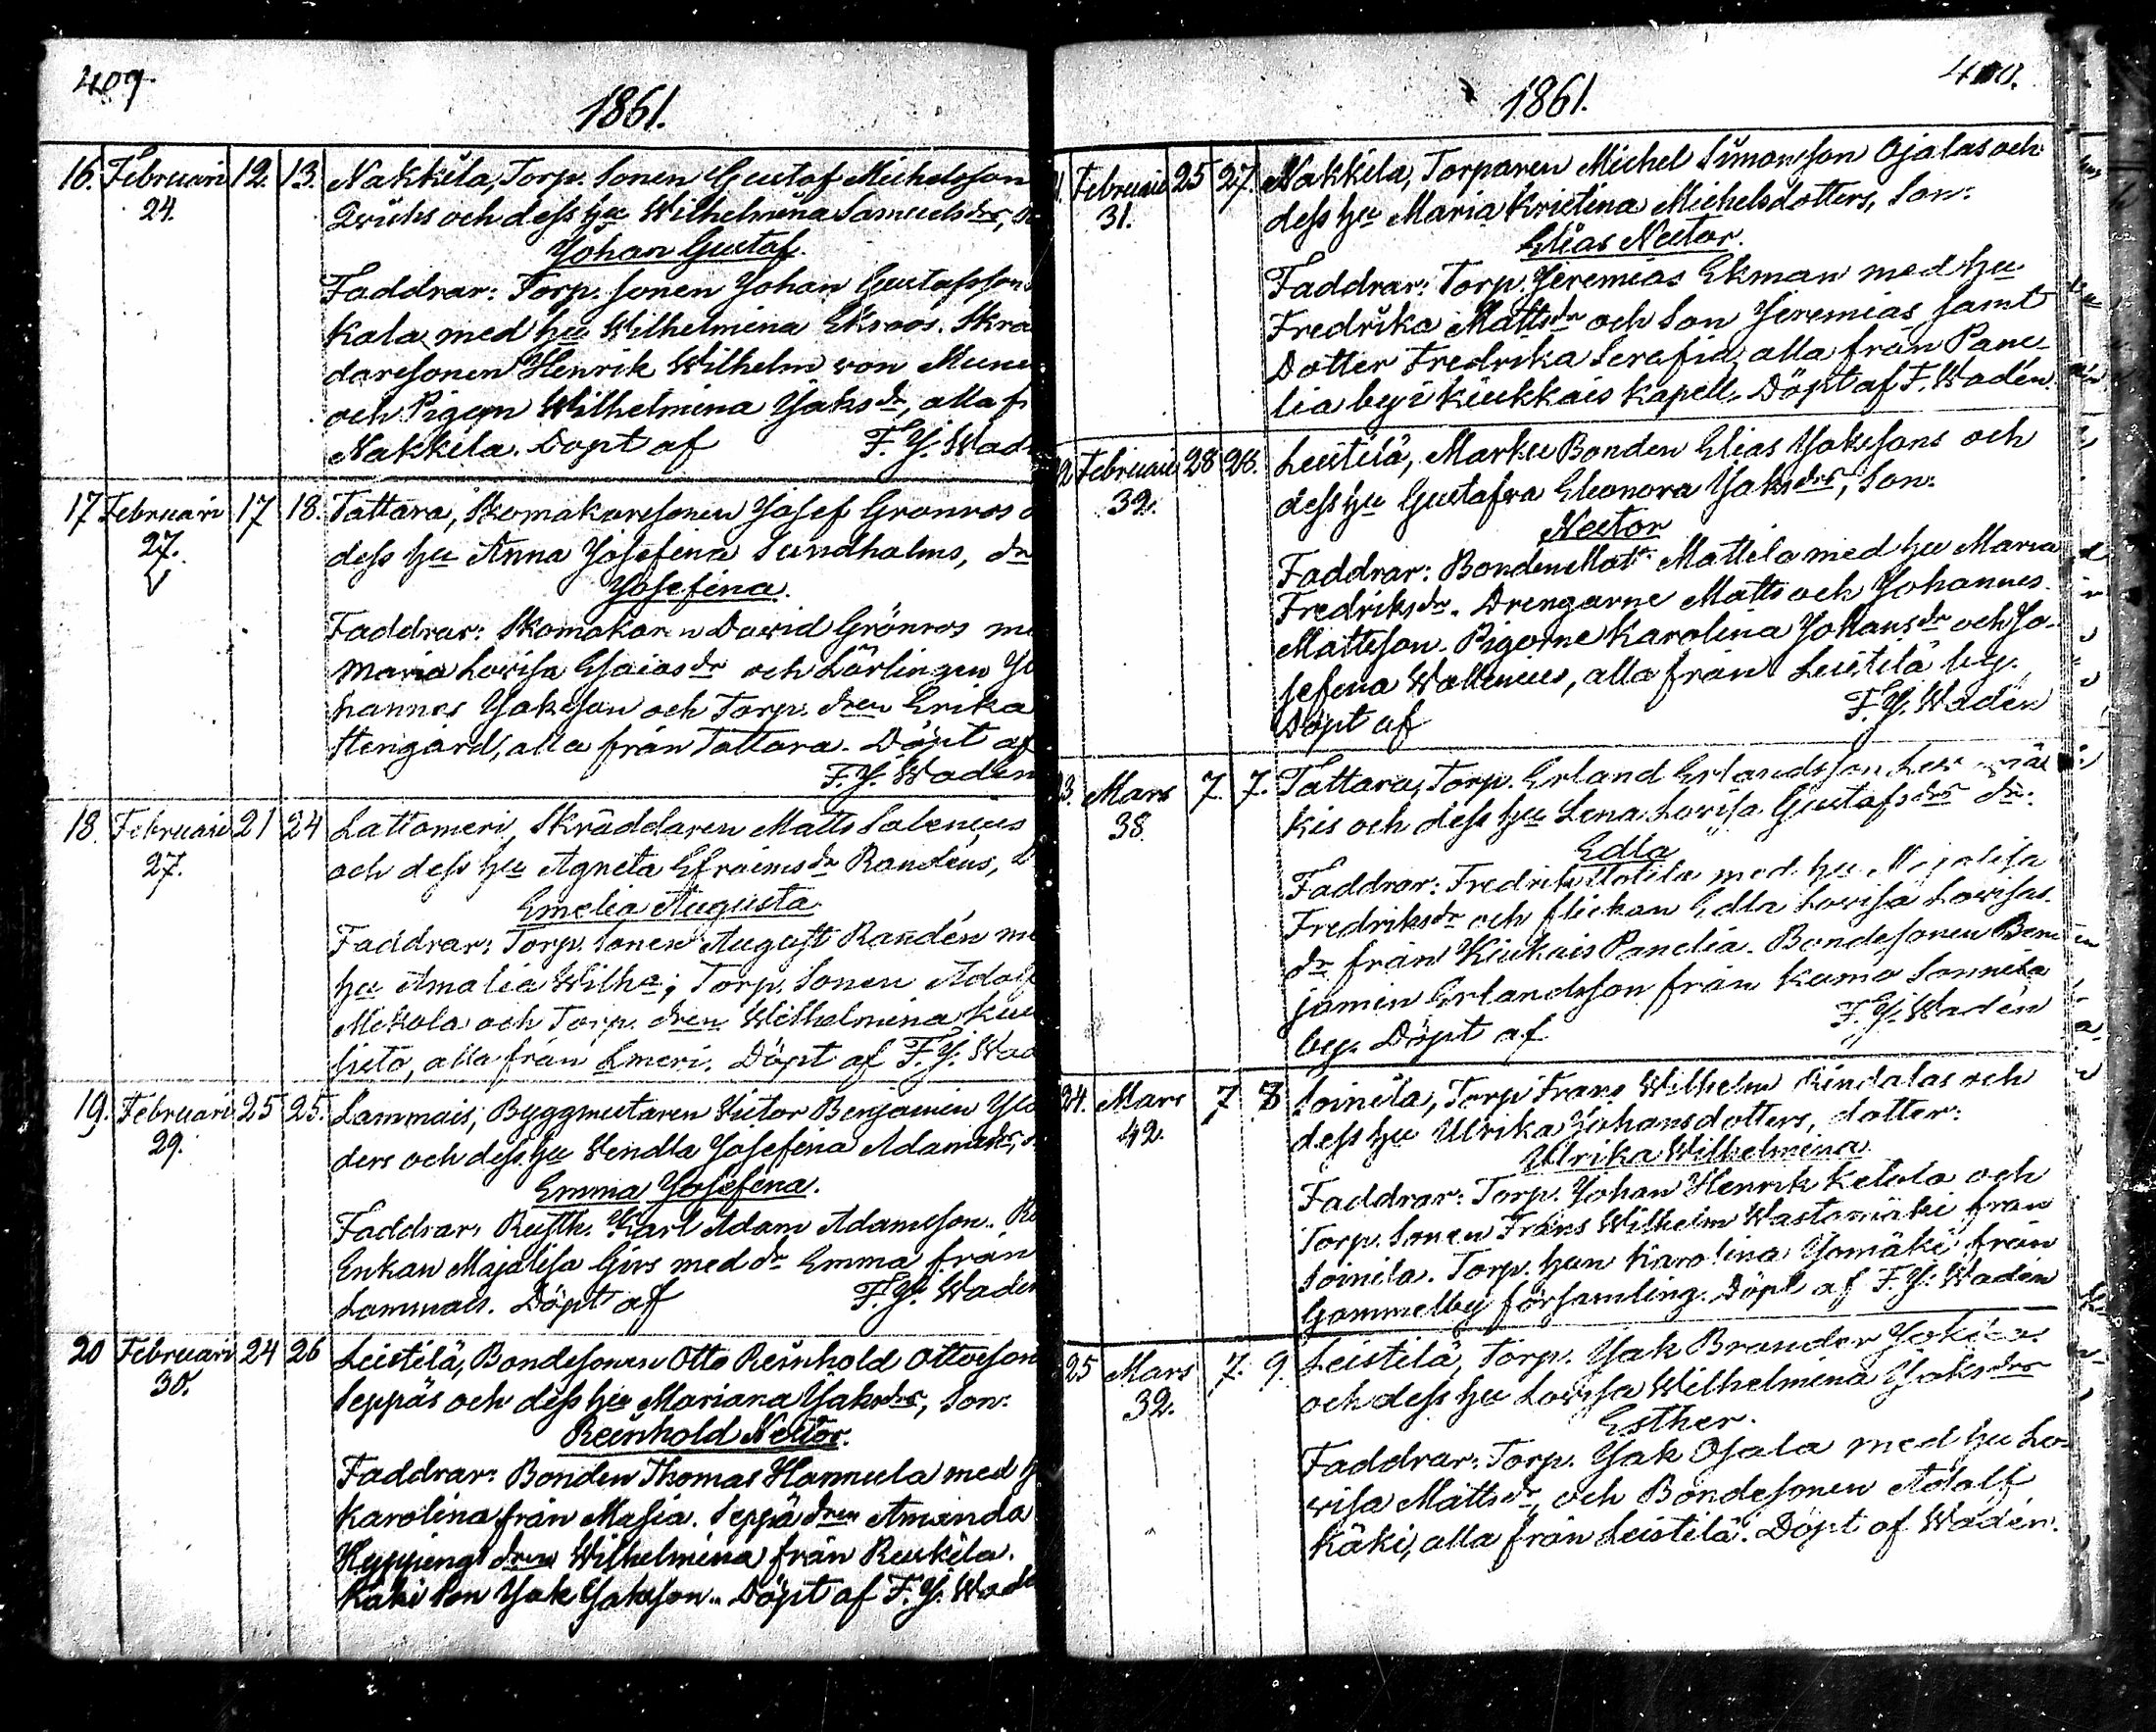 409.
1861.
16. Februari 12. 13. Nakkila, Torp. Sonen Gustaf Michelsson
24. och dess hu Wilhelmina Samuelsdrs,
Johan Gustaf.
Faddrar: Torp. sonen Johan Gustafsson
kala med hu Wilhelmina Ekroos. Skrä
daresonen Henrik Wilhelm von
och Pigan Wilhelmina Jaksdr, alla f
Nakkila. Döpt af F. J. Wad
17 Februari 17 18. Tattara, Skomakaresonen Josef Grönros o
27. dess hu Anna Josefina Sundholms, dr
Josefina.
Faddrar: Skomakaren David Grönros me
Maria Lovisa Esaiasdr och Lärlingen Jo
hannes Jaksson och Torp. dren Erika
Stengård, alla från Tattara. Döpt af
F. J. Waden
18. Februari 21 24 Lattomeri, Skräddaren Matts Salenius
27. och dess hu Agneta Efraimsdr Randens, d
Emelia Augusta
Faddrar: Torp. Sonen August Randén me
hu Amalia Wilha; Torp. Sonen Adolf
Mikola och Torp. dren Wilhelmina Kui
sieto, alla från Lmeri. Döpt af F. J. Wad
19. Februari 25 25. Lammais, Byggmästaren Victor Benjamin
29. ders och dess hu Vendla Josefina Adamsdrs,
Emma Josefina.
Faddrar: Rusth. Karl Adam Adamsson.
Enkan Majalisa Girs med dr Emma från
Lammais. Döpt af F. J. Waden
20 Februari 24 26 Leistilä, Bondesonen Otto Reinhold Ottosson
30. Seppäs och dess hu Mariana Jaksdrs, Son:
Reinhold Nestor.
Faddrar: Bonden Thomas Hannula med h
Karolina från Masia. Seppä dren Amanda
Hyppings dren Wilhelmina från Ruskila.
Käki Son Jak Jaksson. Döpt af F. J. Wadé
410.
1861.
1. Februari 25 27. Nakkila, Torparen Michel Simonsson Ojalas och
31. dess hu Maria Kristina Michelsdotters, Son:
Elias Nestor.
Faddrar: Torp. Jeremias Ekman med hu
Fredrika Mattsdr och Son Jeremias samt
Dotter Fredrika Serafia, alla från Pane-
lia by i Kiukkais Kapell. Döpt af F. Wadén.
2 Februari 28 28. Leistilä, Marku Bonden Elias Jakssons och
32. dess hu Gustafva Eleonora Jaksdrs, Son:
Nestor
Faddrar: Bonden Matts Mattila med hu Maria
Fredriksdr. Drengarne Matts och Johannes
Mattsson. Pigorne Karolina Johansdr och Jo-
sefina Wallenius, alla från Leistilä by.
Döpt af F. J. Wadén
3. Mars 7. 7. Tattara, Torp. Erland Erlandsson
38. kis och dess hu Lena Lovisa Gustafsdrs dr:
Edla
Faddrar: Fredrik Uotila med hu Majalisa
Fredriksdr och flickan Edla Lovisa Lovisas
dr från Kiukais Panelia. Bondesonen Ben
jamin Erlandsson från Kumo Sonnila
by. Döpt af F. J. Wadén
24. Mars 7 8 Soinila, Torp Frans Wilhelm Rindalas och
42. dess hu Ulrika Johansdotters, dotter:
Ulrika Wilhelmina
Faddrar: Torp. Johan Henrik Ketola och
Torp. Sonen Frans Wilhelm Wastamäki från
Soinila. Torp. hun Karolina Jomäki från
Gammelby församling. Döpt af F. J. Wadén
25 Mars 7. 9. Leistilä, Torp. Jak Brander
32. och dess hu Lovisa Wilhelmina Jaksdrs
Esther.
Faddrar: Torp. Jak Ojala med hu Lo-
visa Mattsdr, och Bondesonen Adolf
Käki, alla från Leistilä. Döpt af Wadén.